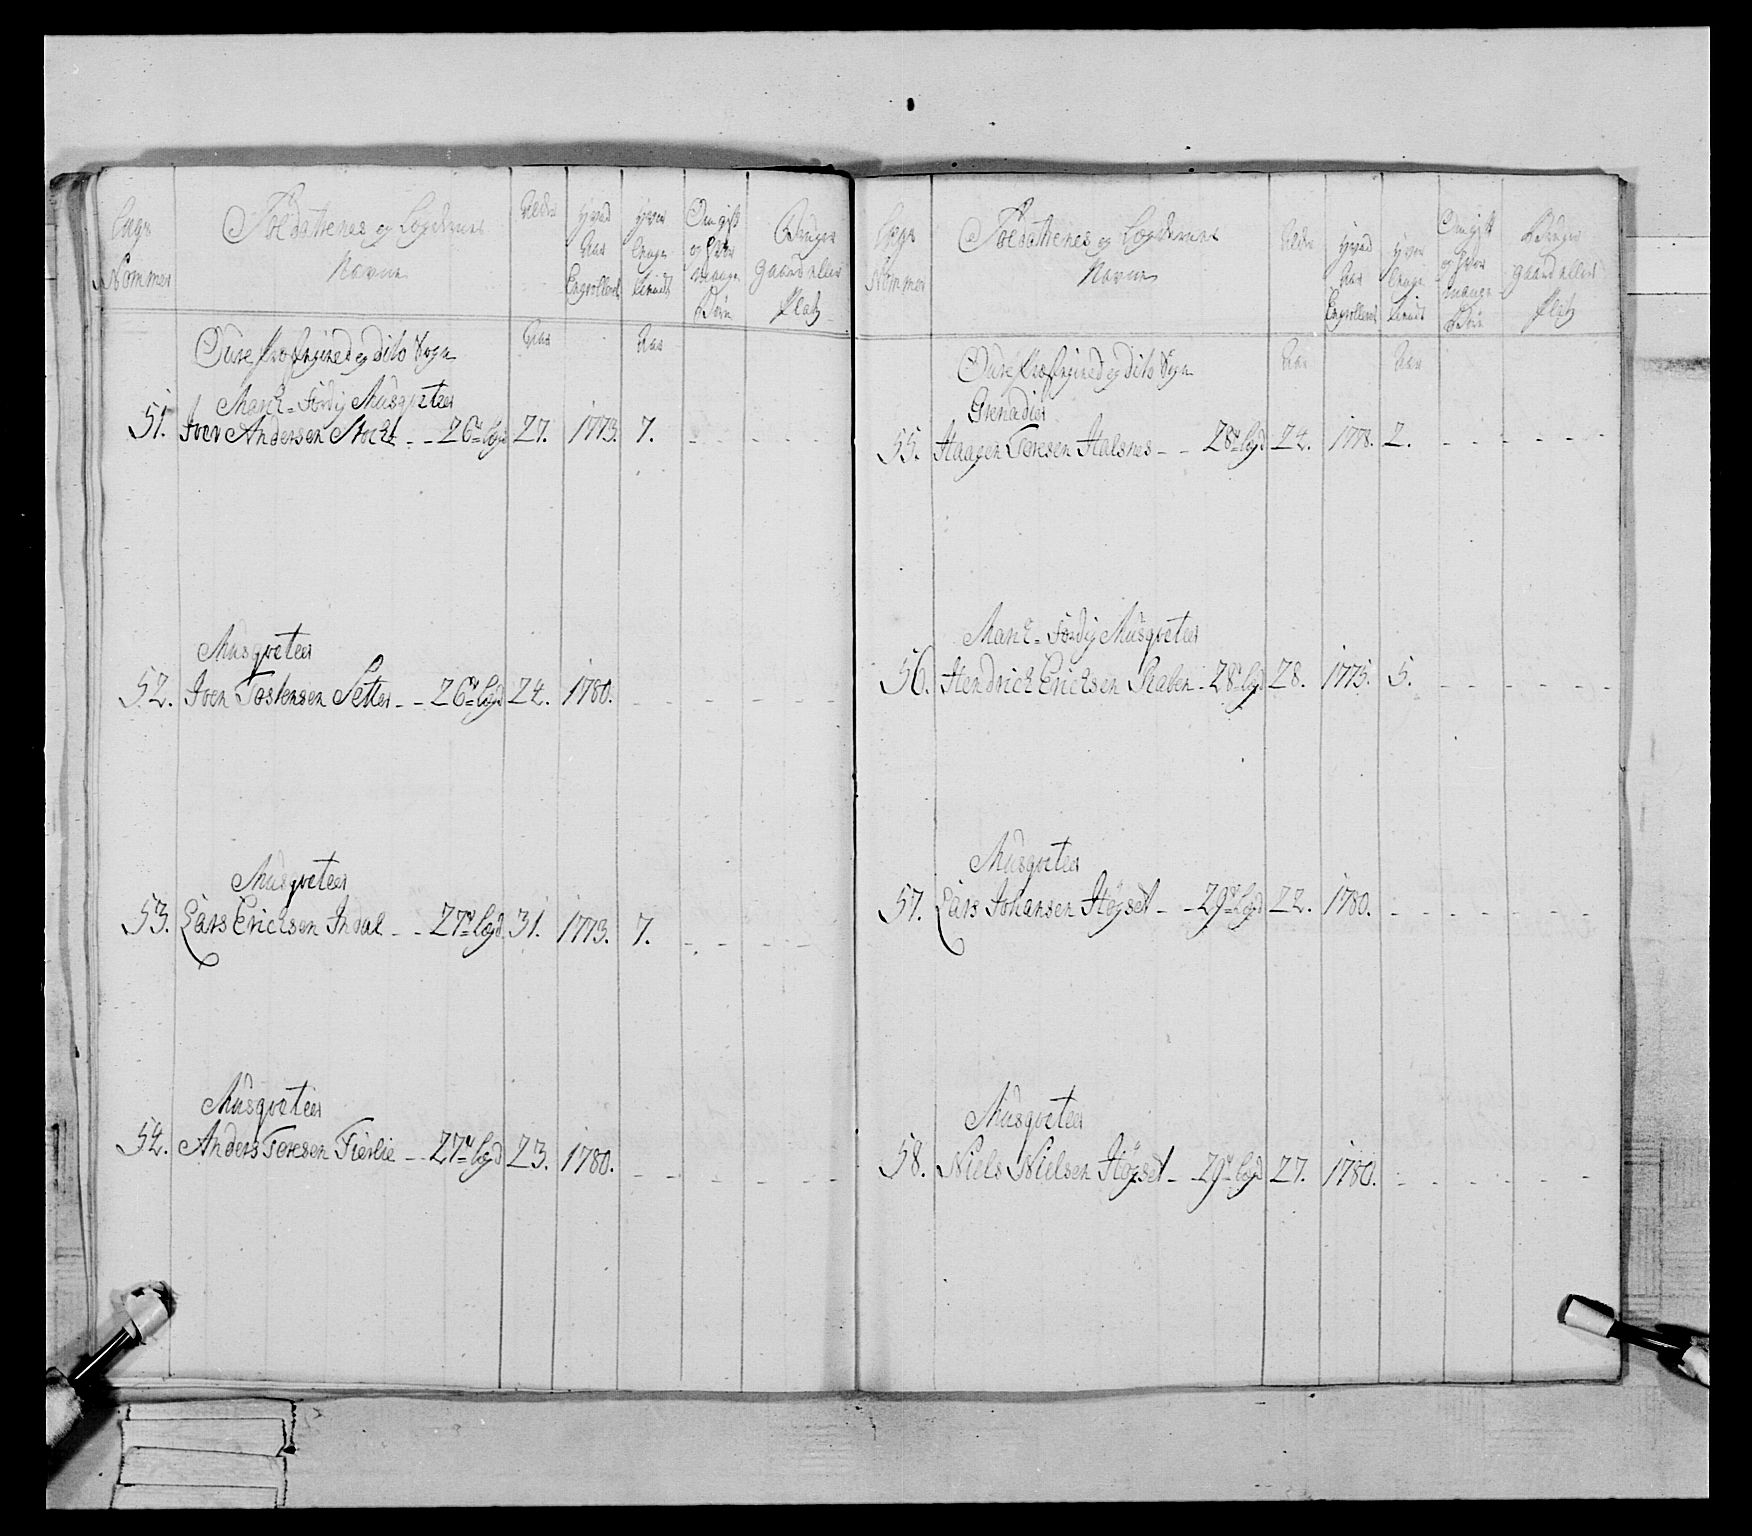 Lægs
Nommer
Soldatternes og Lægdernes
Navne
Alder
Hvad
Aar
Engrolleret
Hvor
længe
tiendt
Om gift
og hvor
mange
Børn
Bruger
gaard eller
Platz
Oure Præstegield og dito Sogn
Aar
Aar
Mark-Færdig Musqveteer
51. Iver Andersen Stockt - - 26de Lægd 27. 1773. 7.
Musqveteer
52. Iver Tostensen Setter - - 26de Lægd 24. 1780.
Musqveteer
53. Lars Ericksen Indal - - 27de Lægd 31. 1773. 7.
Musqveteer
54. Anders Toresen Fierlie - - 27de Lægd 23. 1780.
Lægs
Nommer
Soldatternes og Lægdernes
Navne
Alder
Hvad
Aar
Engrolleret
Hvor
længe
tiendt
Om gift
og hvor
mange
Børn
Bruger
gaard eller
Platz
Oure Præstegield og dito Sogn
Aar
Aar
Grenadier
55. Haagen Toresen Halsnes - - 28de Lægd 24. 1778. 2.
Mark-Færdig Musqveteer
56. Hendrick Ericksen Raben - 28de Lægd 28. 1775. 5.
Musqveteer
57. Lars Johansen Høyset - - 29de Lægd 22. 1780.
Musqveteer
58. Niels Nielsen Høyset - - 29de Lægd 27. 1780.